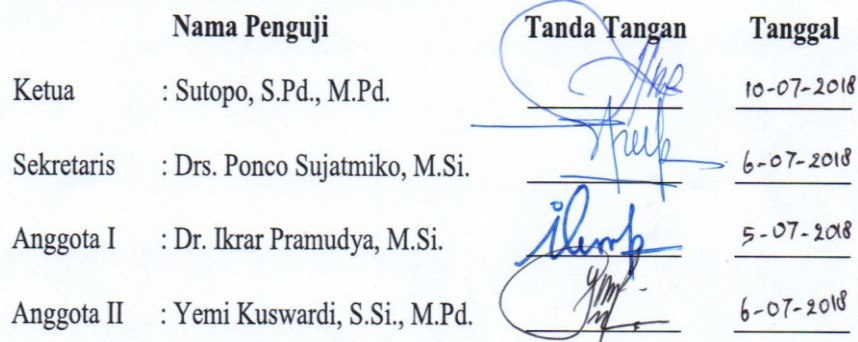 Nama Penguji Tanda Tangan Tanggal
Ketua : Sutopo, S.Pd., M.Pd. 10-07-2018
Sekretaris : Drs. Ponco Sujatmiko, M.Si. 6-07-2018
Anggota I : Dr. Ikrar Pramudya, M.Si. 5-07-2018
Anggota II : Yemi Kuswardi, S.Si., M.Pd. 6-07-2018